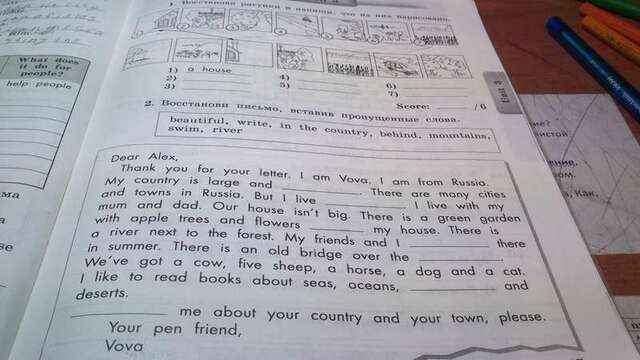 1. Восстанови рисунки и напиши, что на них нарисовано.
1) a house
4)
6)
2)
5)
7)
3)
Score: /6
2. Восстанови письмо, вставив пропущенные слова.
beautiful, write, in the country, behind, mountains,
swim, river
Dear Alex,
Thank you for your letter. I am Vova. I am from Russia.
My country is large and ________. There are many cities
and towns in Russia. But I live ________. I live with my
mum and dad. Our house isn't big. There is a green garden
with apple trees and flowers ________ my house. There is
a river next to the forest. My friends and I ________ there
in summer. There is an old bridge over the ________.
We've got a cow, five sheep, a horse, a dog and a cat.
I like to read books about seas, oceans, ________ and
deserts.
________ me about your country and your town, please.
Your pen friend,
Vova
Unit 3
What does
it do for
people?
help people